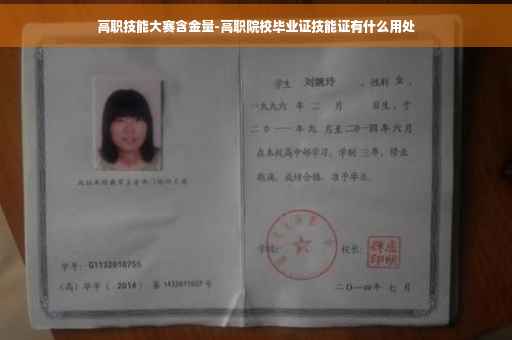 高职技能大赛含金量-高职院校毕业证技能证有什么用处
学生 刘婉玲 ，性别 女 ，
一九九六 年 二 月 日生，于
二〇一一 年 九 月至 二〇一四 年 六 月
在本校高中部学习，学制 三年，修业
期满，成绩合格，准予毕业。
学号： G1132010755
（高）毕字（ 2014 ）第 1432011027 号
学校：
校长：
二〇一四年 七 月